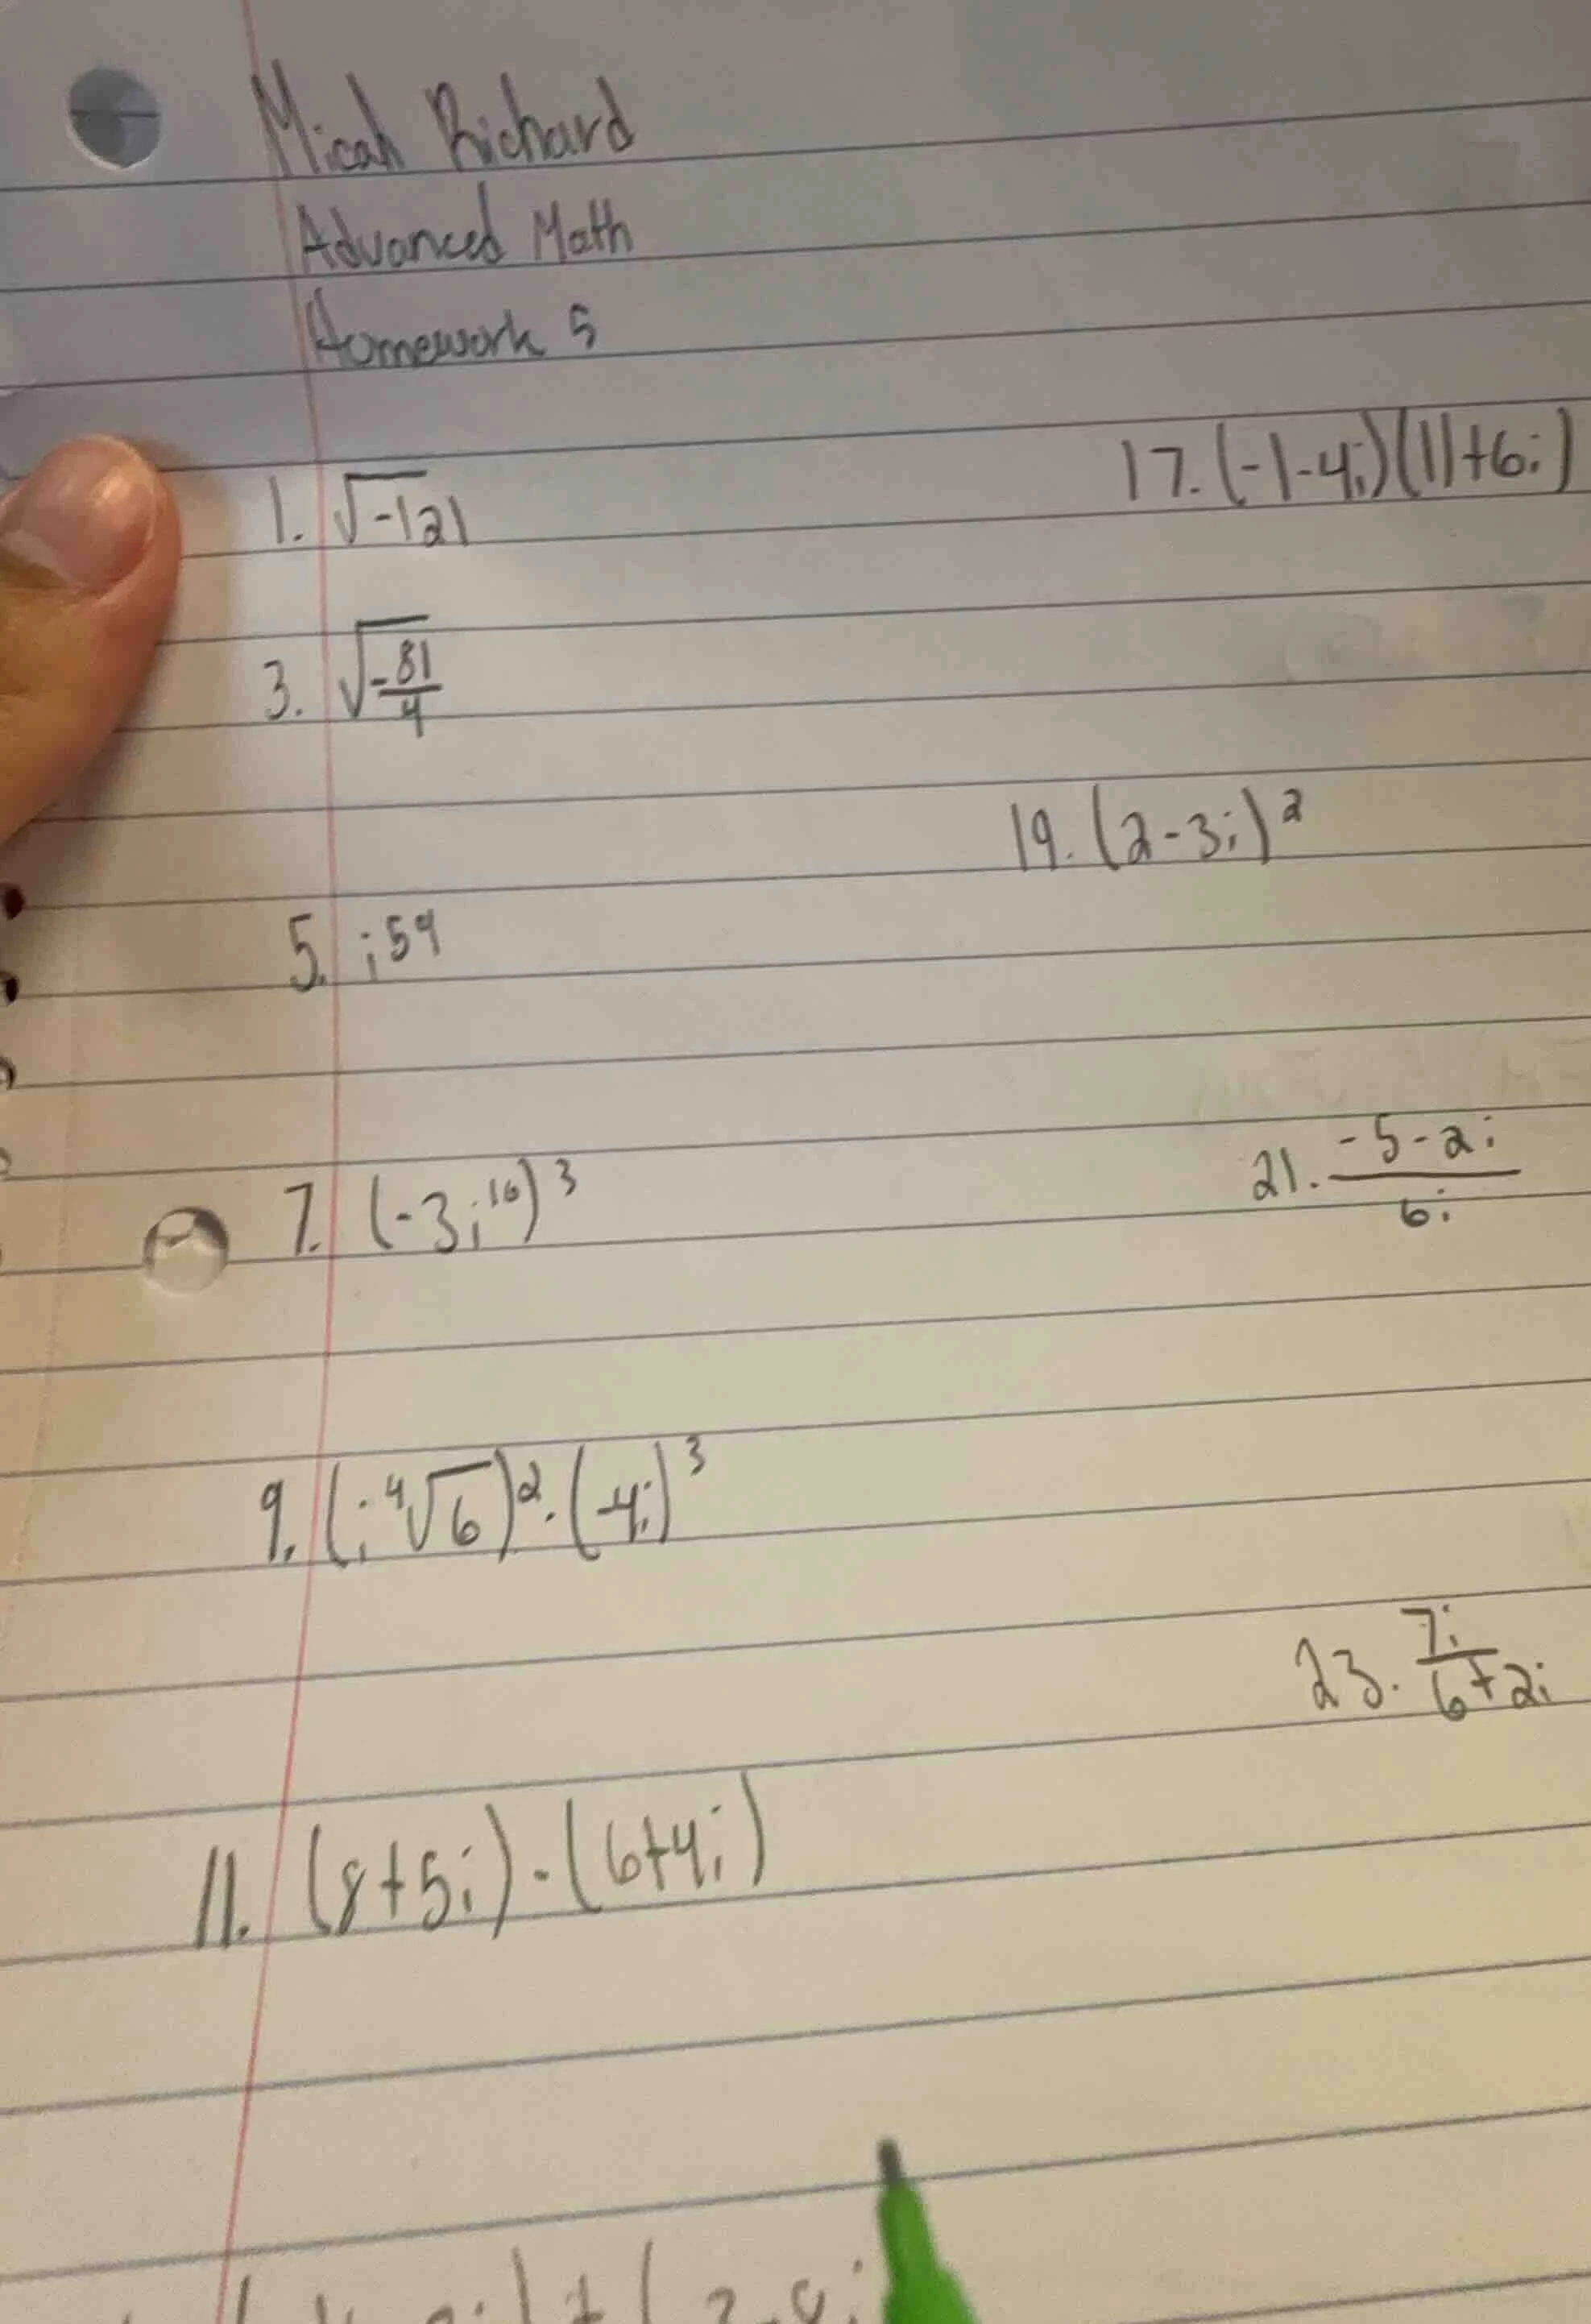 Micah Richard
Advanced Math
Homework 5
1. √-121
3. √-81/4
5. i^59
7. (-3i^16)^3
9. (i ∜6)^2 · (-4i)^3
11. (8+5i) - (6+4i)
17. (-1-4i)(11+6i)
19. (2-3i)^2
21. -5-2i/6i
23. 7i/6+2i